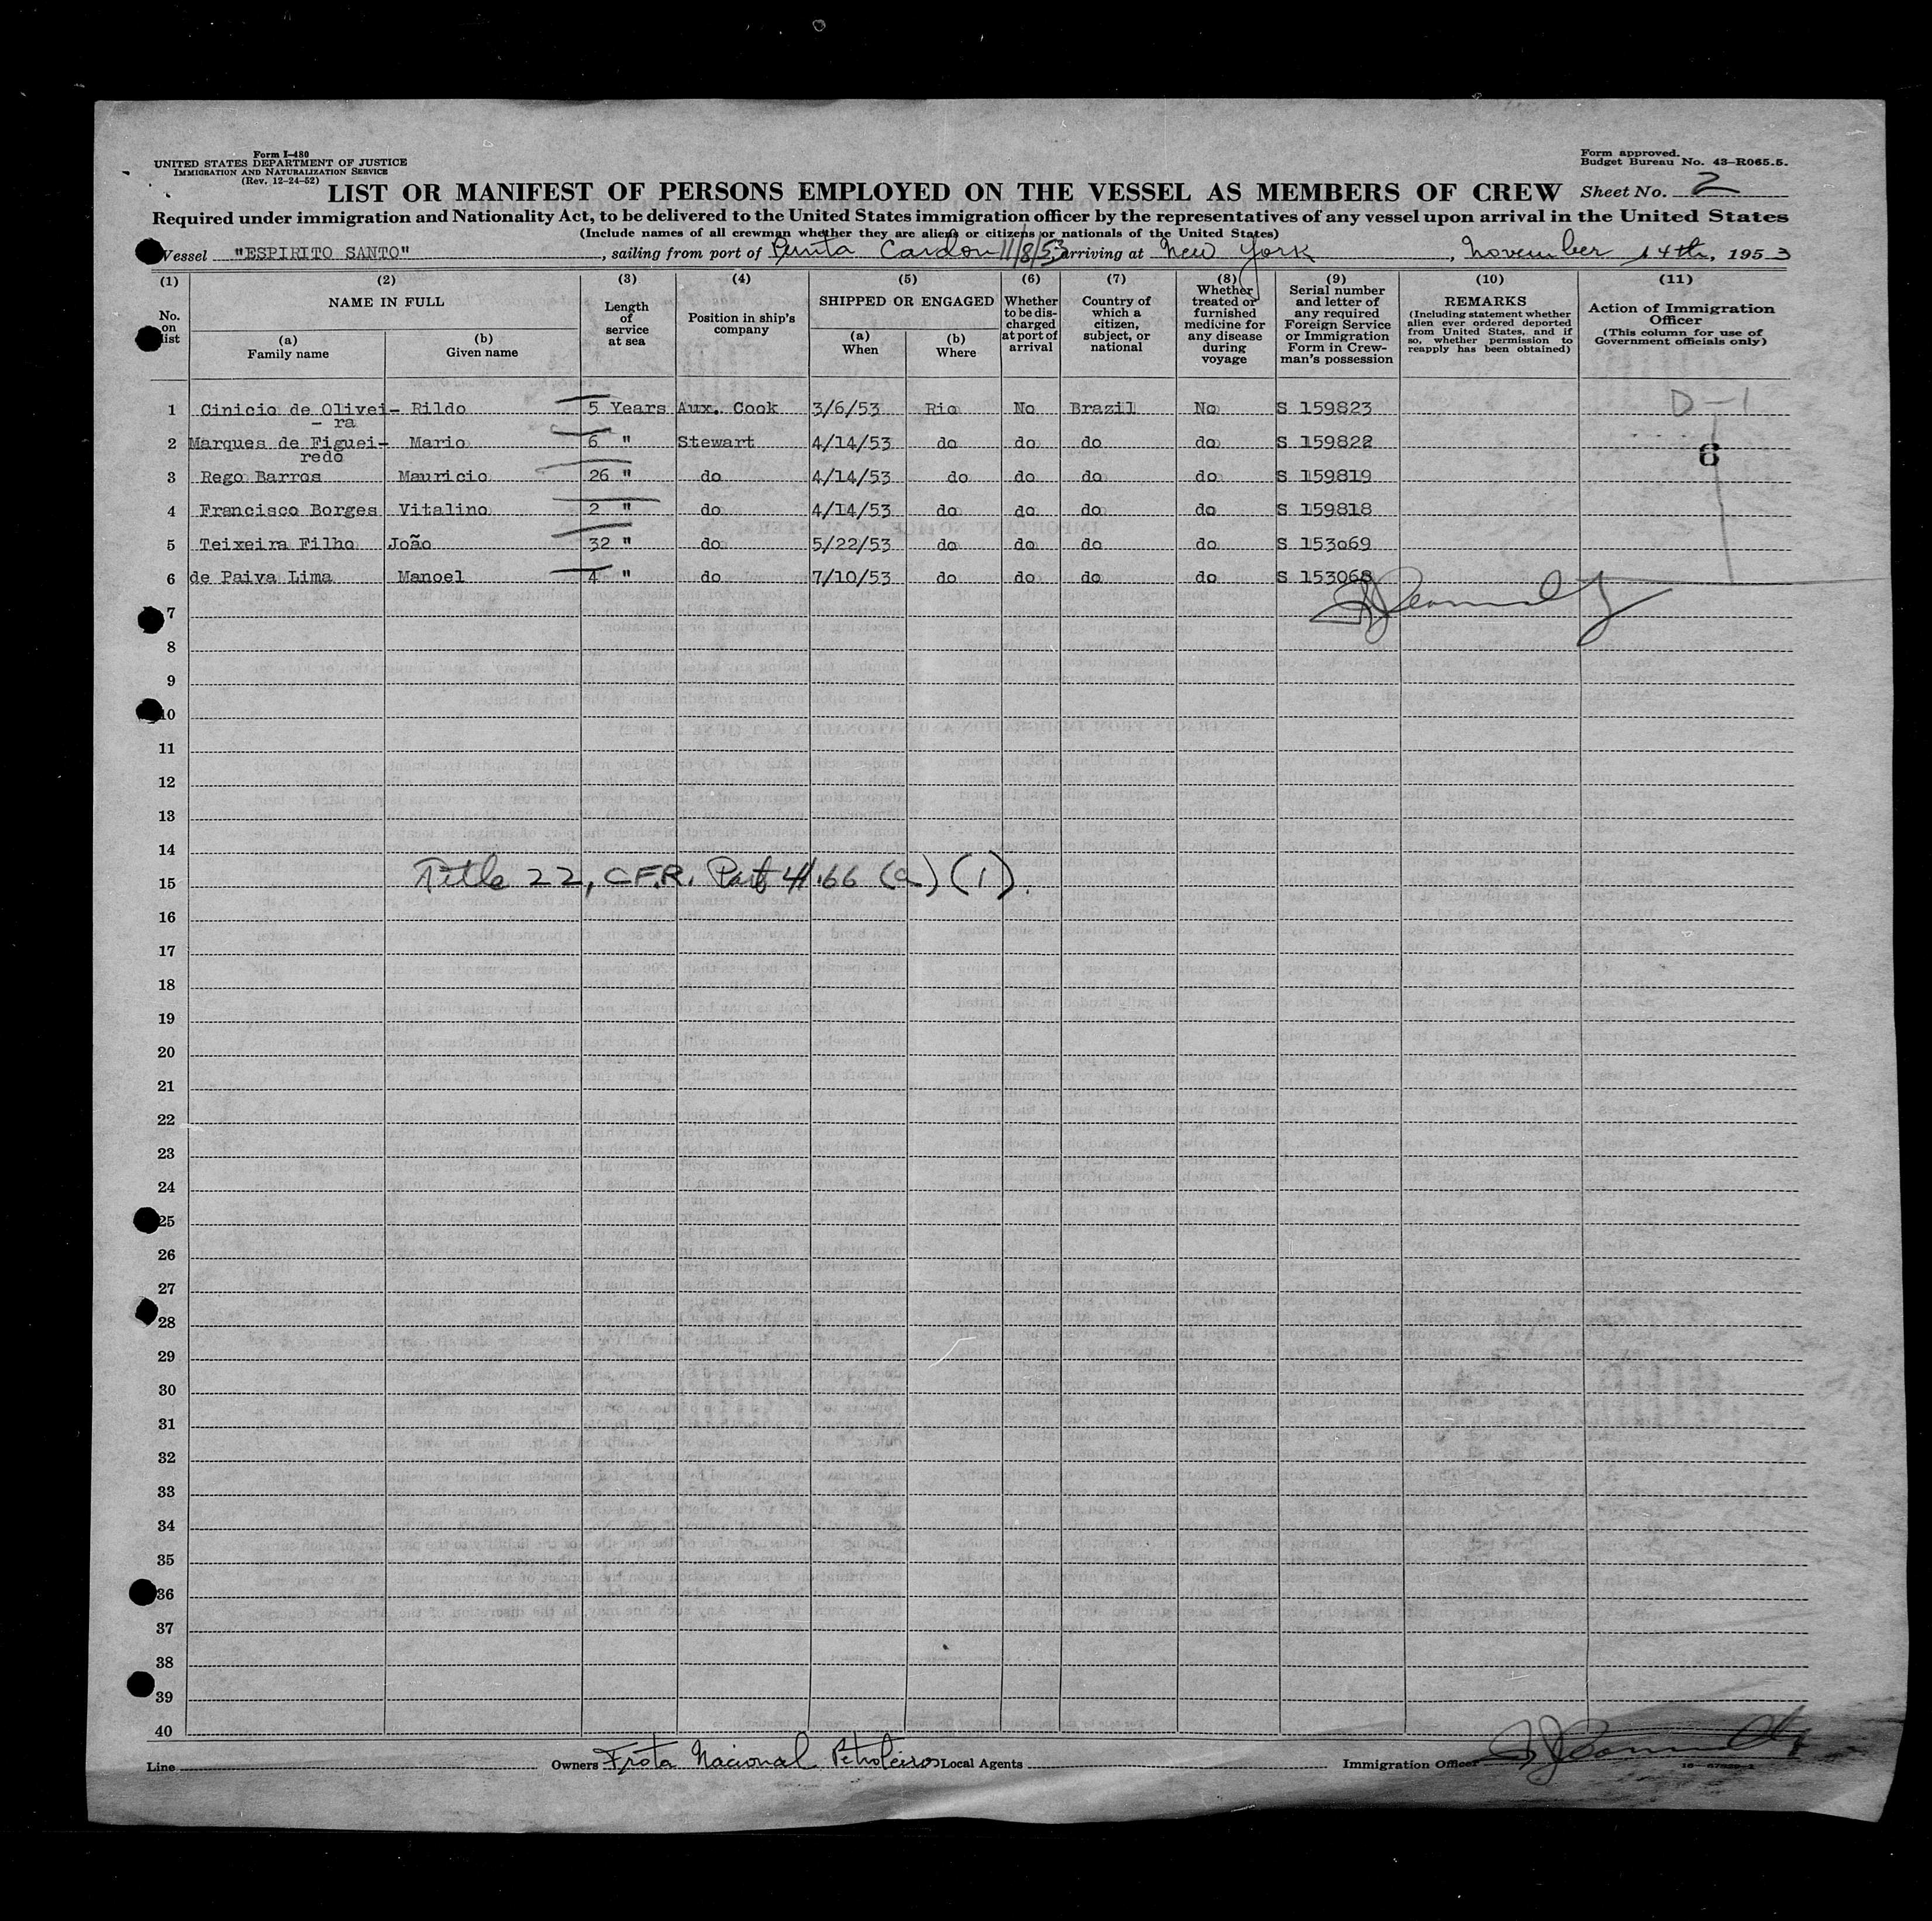 Form I-480
UNITED STATES DEPARTMENT OF JUSTICE
IMMIGRATION AND NATURALIZATION SERVICE
(Rev. 12-24-52)
Form approved.
Budget Bureau No. 43-R065.5.
LIST OR MANIFEST OF PERSONS EMPLOYED ON THE VESSEL AS MEMBERS OF CREW Sheet No. 2
Required under immigration and Nationality Act, to be delivered to the United States immigration officer by the representatives of any vessel upon arrival in the United States
(Include names of all crewman whether they are aliens or citizens or nationals of the United States)
Vessel "ESPIRITO SANTO", sailing from port of Punta Cardon 11/8/53, arriving at New York, November 14th, 1953
(1) (2) (3) (4) (5) (6) (7) (8) (9) (10) (11)
No. on list
NAME IN FULL
(a) Family name
(b) Given name
Length of service at sea
Position in ship's company
SHIPPED OR ENGAGED
(a) When
(b) Where
Whether to be discharged at port of arrival
Country of which a citizen, subject, or national
Whether treated or furnished medicine for any disease during voyage
Serial number and letter of any required Foreign Service or Immigration Form in Crewman's possession
REMARKS
(Including statement whether alien ever ordered deported from United States, and if so, whether permission to reapply has been obtained)
Action of Immigration Officer
(This column for use of Government officials only)
1 Cinicio de Olivei- Rildo 5 Years Aux. Cook 3/6/53 Rio No Brazil No S 159823 D-1
- ra
2 Marques de Figuei- Mario 6 " Stewart 4/14/53 do do do do S 159822 6
redo
3 Rego Barros Mauricio 26 " do 4/14/53 do do do do S 159819
4 Francisco Borges Vitalino 2 " do 4/14/53 do do do do S 159818
5 Teixeira Filho João 32 " do 5/22/53 do do do do S 153069
6 de Paiva Lima Manoel 4 " do 7/10/53 do do do do S 153068
7
8
9
10
11
12
13
14
Title 22, C.F.R. Part 41.66 (a) (1).
15
16
17
18
19
20
21
22
23
24
25
26
27
28
29
30
31
32
33
34
35
36
37
38
39
40
Line Owners Frota Nacional Petroleiros Local Agents Immigration Officer